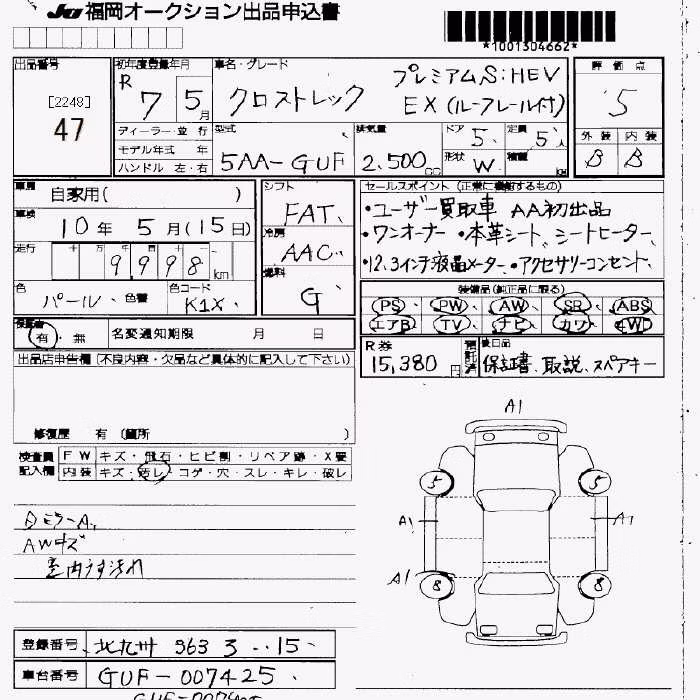 JU 福岡オークション出品申込書
*1001304662*
出品番号
[2248]
47
初年度登録年月
R 7 5 月
車名・グレード
プレミアムS:HEV
クロストレック EX (ルーフレール付)
評価点
5
外装 内装
B B
ディーラー・並行
モデル年式 年
ハンドル 左・右
型式
5AA-GUF
排気量
2.500 CC
ドア 5.
定員 5 人
形状 W
積載 KG
車歴
自家用( )
車検
10年 5月(15日)
走行
十 万 千 百 十 一
9,998 km
色
パール 色替
色コード
K1X
シフト
FAT
冷房
AAC
燃料
G
セールスポイント (正常に機能するもの)
・ユーザー買取車 AA初出品
・ワンオーナー ・本革シート、シートヒーター、
・12.3インチ液晶メーター、・アクセサリーコンセント、
装備品(純正品に限る)
PS PW AW SR ABS
エアB TV ナビ カワ 4WD
保証書
有・無
名変通知期限 月 日
R券
15,380 円
預託済
後日品
保証書、取説、スペアキー
出品店申告欄(不良内容・欠品など具体的に記入して下さい)
修復歴 有 (箇所 )
検査員記入欄
FW キズ・飛石・ヒビ割・リペア跡・X要
内装 キズ・汚レ・コゲ・穴・スレ・キレ・破レ
AWキズ
室内うす汚れ
A1
5 5
A1 A1
A1
8 8
登録番号 北九州 363 ろ ・・15
車台番号 GUF-007425